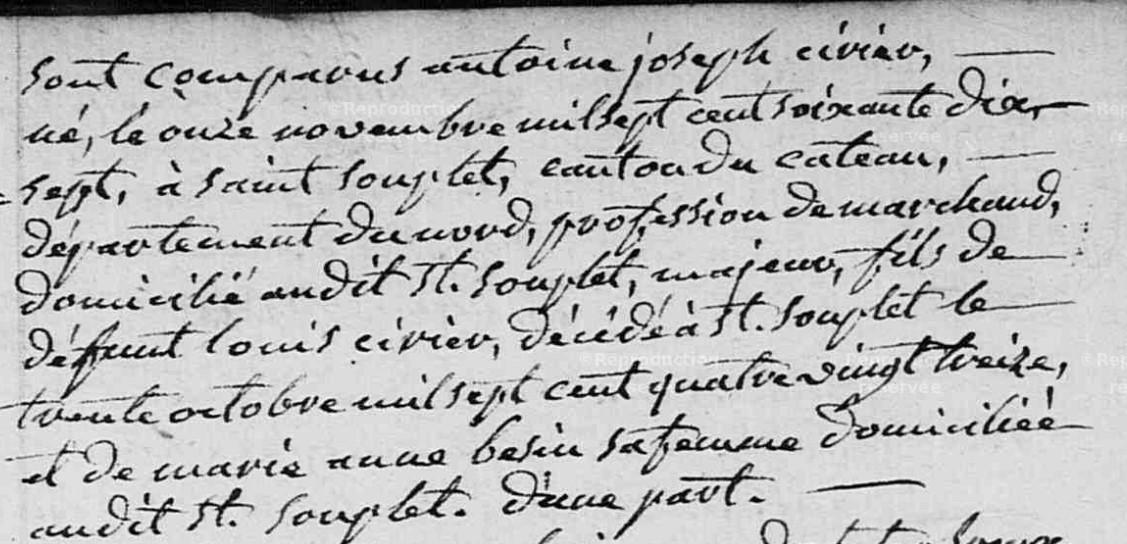 sont comparus antoine joseph civier,
né, le onze novembre mil sept cent soixante dix,
sept, à saint souplet, canton du cateau,
département du nord, profession de marchand,
domicilié audit St. Souplet, majeur, fils de
défunt louis civier, décédé à St. Souplet le
trente octobre mil sept cent quatre vingt treize,
et de marie anne besin sa femme domiciliée
audit St. Souplet. d'une part.